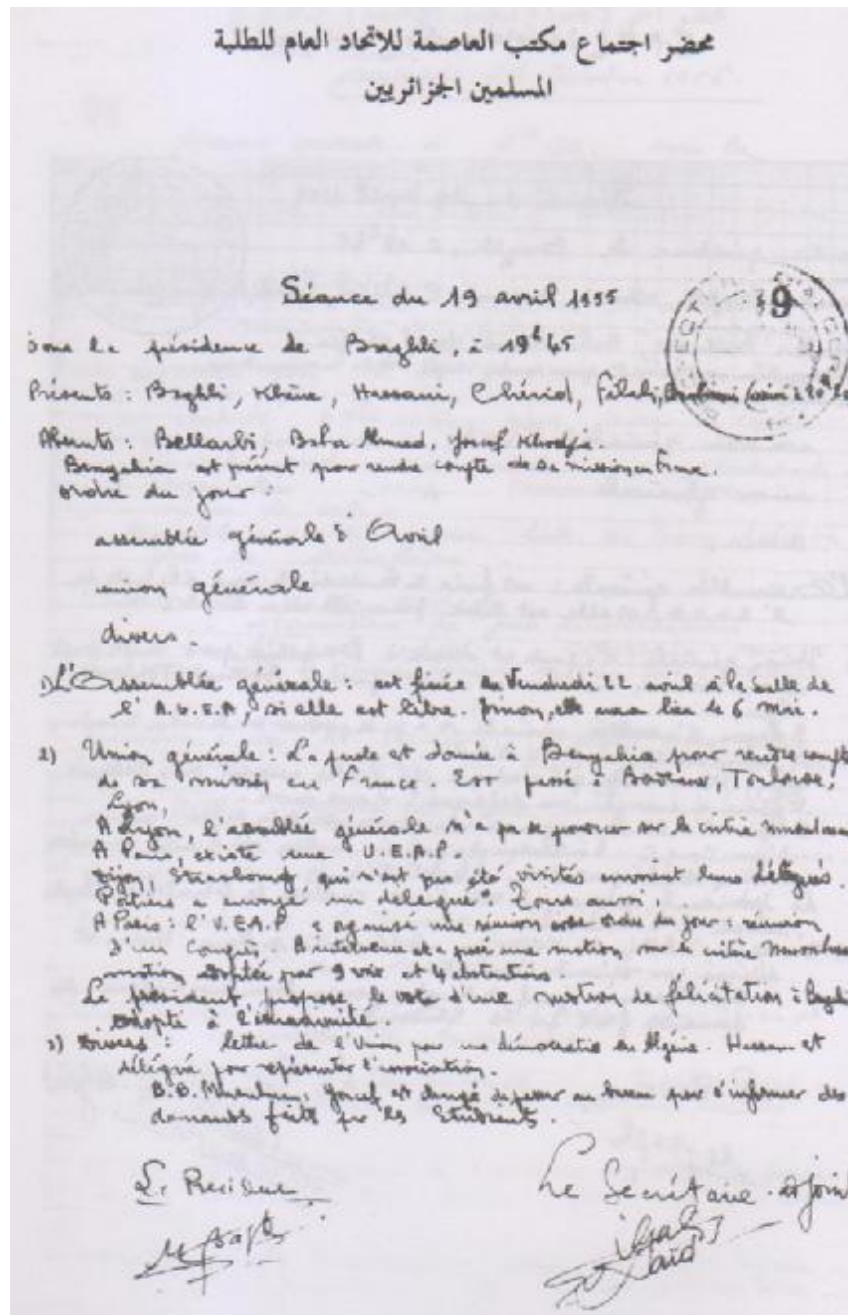 محضر اجتماع مكتب العاصمة للاتحاد العام للطلبة
المسلمين الجزائريين
Séance du 19 avril 1955
9
Sous la présidence de Baghli, à 19h45
Présents : Baghli, Khène, Hassani, Chérid, Filali,
Absents : Bellarbi, Baba Ahmed, Youcef Khodja.
Bengahia est présent pour rendre compte de sa mission en France.
ordre du jour :
assemblée générale d'Avril
union générale
divers.
1) L'Assemblée générale : est fixée au Vendredi 22 avril à la salle de
l'A.G.E.A, si elle est libre. Sinon, elle aura lieu le 6 Mai.
2) Union générale : La parole est donnée à Bengahia pour rendre compte
de sa mission en France. Est passé à Toulouse,
Lyon,
A Lyon, l'assemblée générale n'a pu se prononcer sur le critère
A Paris, existe une U.E.A.P.
Dijon, Strasbourg qui n'ont pas été visités enverront leurs délégués.
Poitiers a envoyé un délégué. Tours aussi.
A Paris : l'U.E.A.P a organisé une réunion ordre du jour : réunion
d'un Congrès. B intervenu et a posé une motion sur le critère
motion adoptée par 9 voix et 4 abstentions.
Le président propose le vote d'une motion de félicitation à
adopté à l'unanimité.
3) Divers : lettre de l'Union pour une démocratie en Algérie. Hassani est
délégué pour représenter l'association.
Youcef est chargé de passer au bureau pour s'informer des
demandes faites par les Etudiants.
Le President
Le Secrétaire adjoint